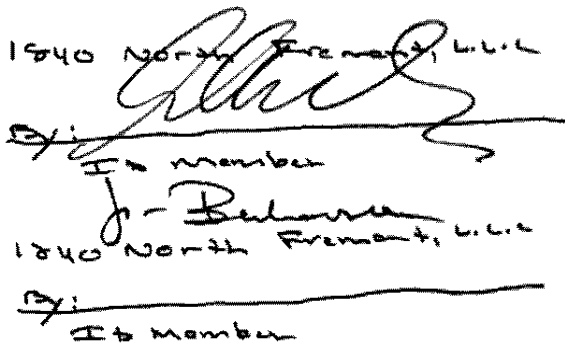 1840 North Fremont, L.L.C
By:
Its member
1840 North Fremont, L.L.C
By:
Its member